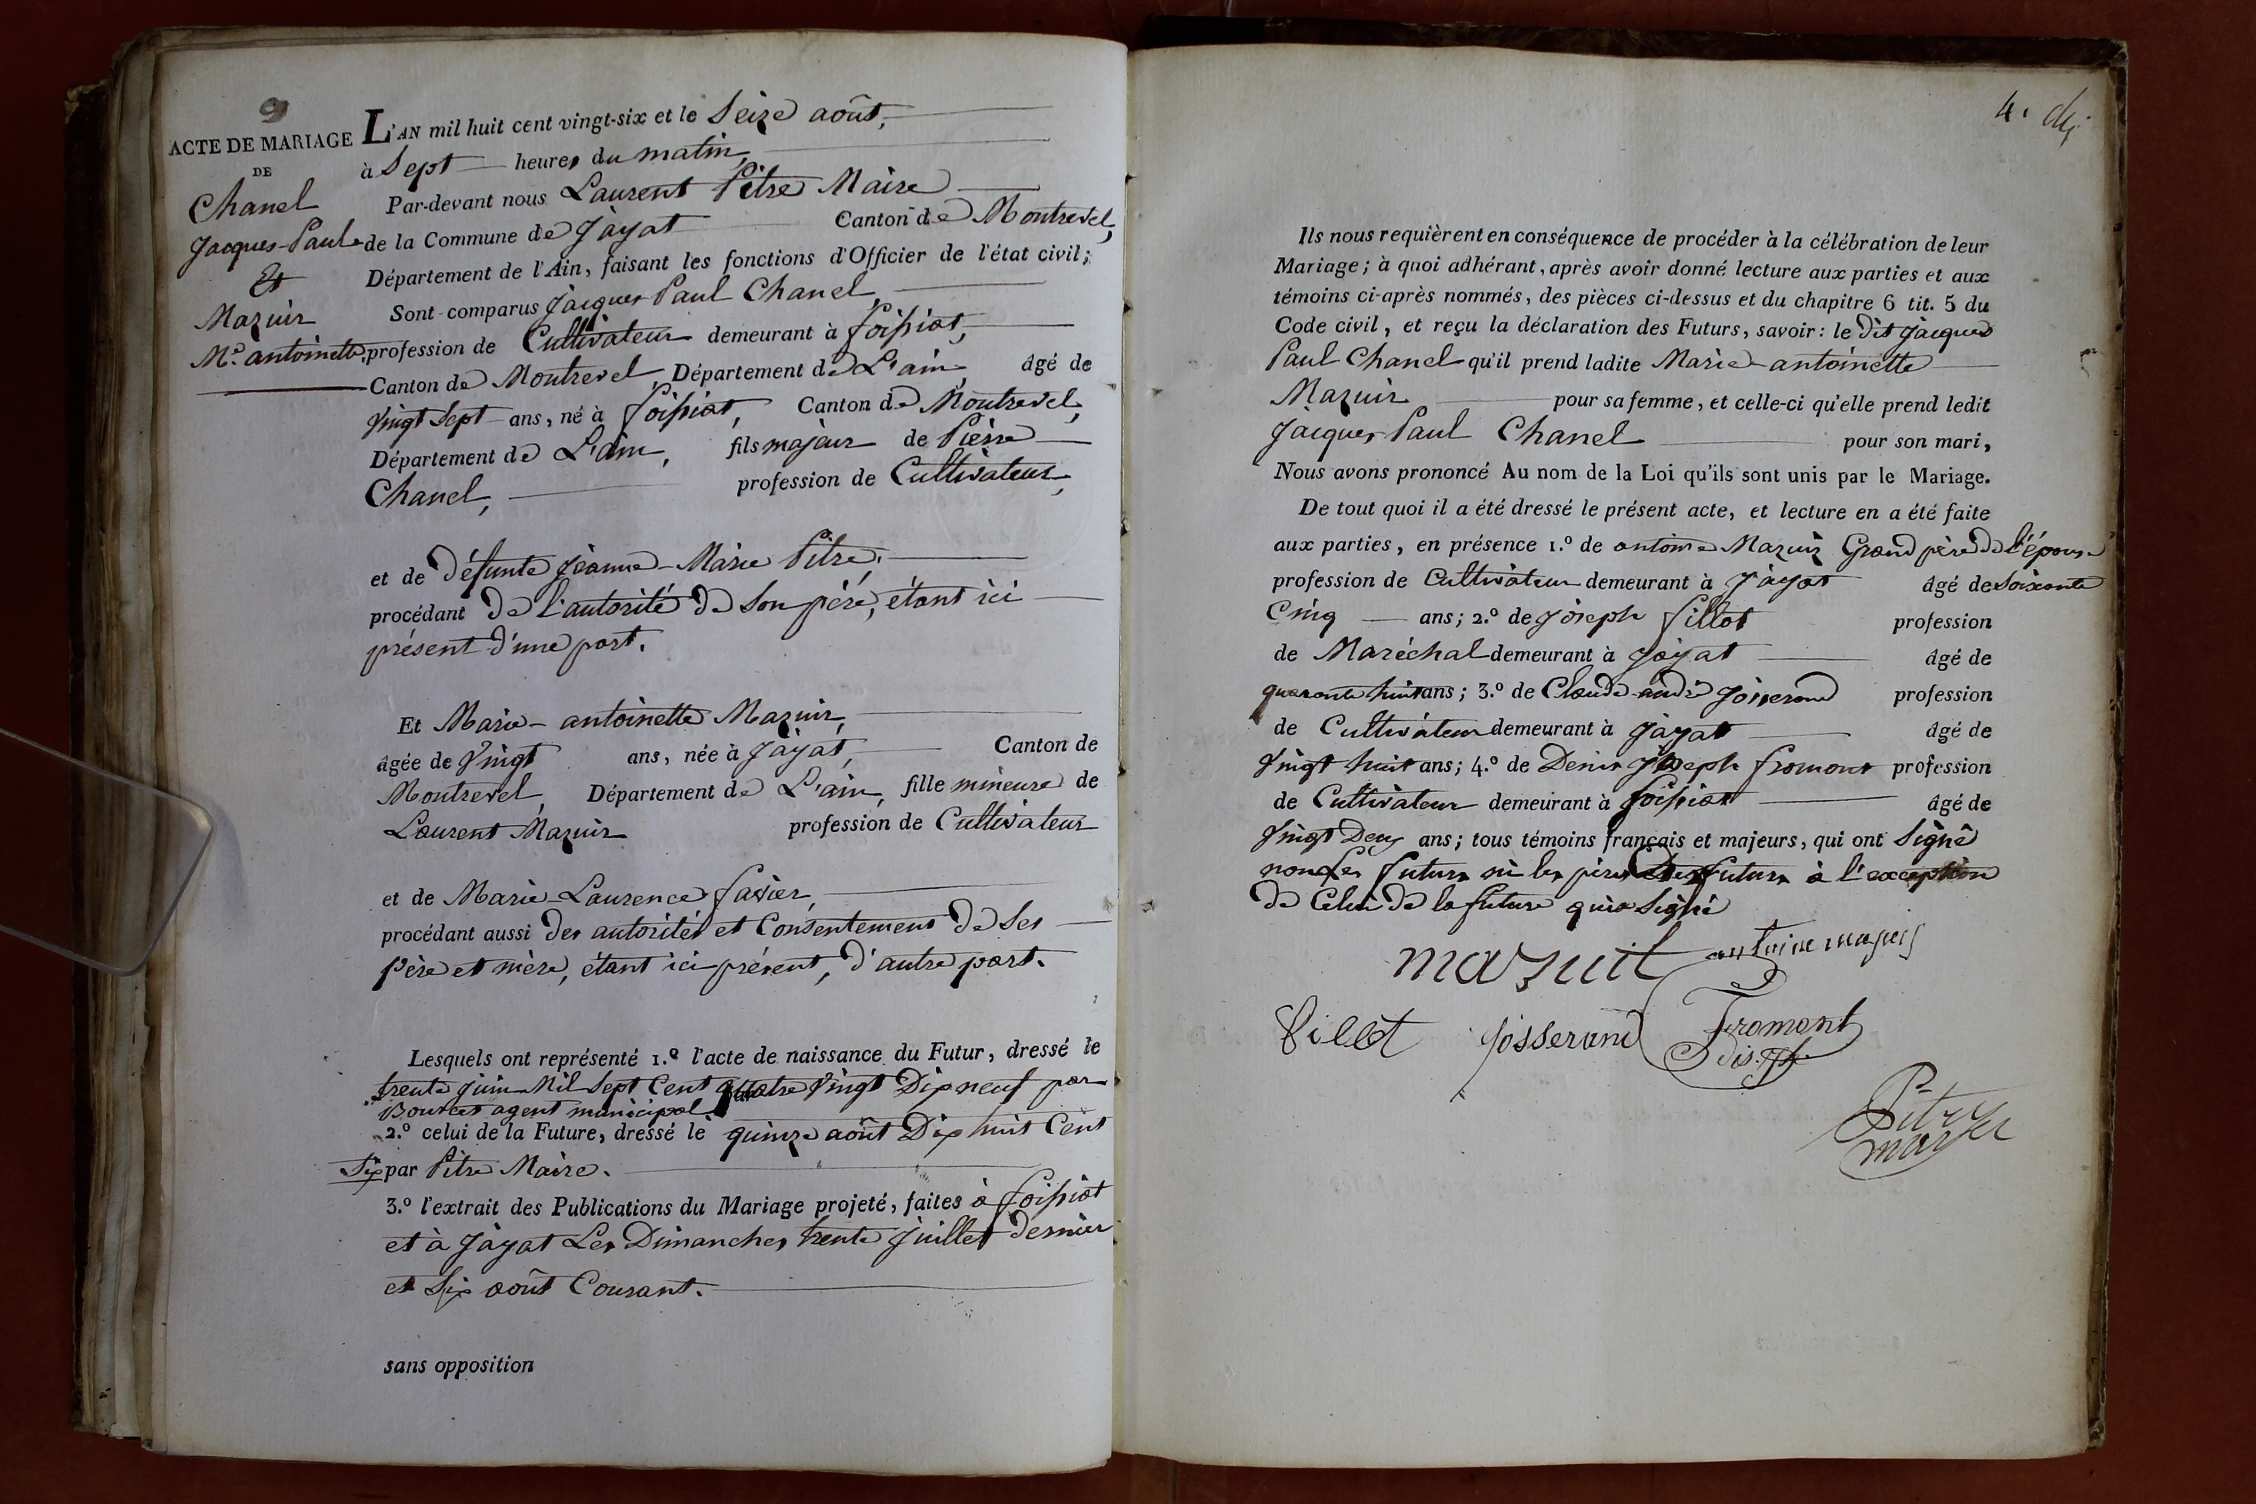 9
ACTE DE MARIAGE
DE
Chanel
Jacques-Paul
Et
Mazuir
Me. antoinette.
L'AN mil huit cent vingt-six et le Seize août,
à Sept heures du matin,
Par-devant nous Laurent Pitre Maire
de la Commune de Jayat Canton de Montrevel,
Département de l'Ain, faisant les fonctions d'Officier de l'état civil;
Sont comparus Jacques Paul Chanel,
profession de Cultivateur demeurant à foissiat,
Canton de Montrevel, Département de L'ain, âgé de
vingt Sept ans, né à foissiat, Canton de Montrevel,
Département de L'ain, fils majeur de Pierre
Chanel, profession de Cultivateur,
et de défunte jeanne-Marie Pitre,
procédant de l'autorité de son père, étant ici
présent d'une part.
Et Marie-antoinette Mazuir,
âgée de Vingt ans, née à Jayat, Canton de
Montrevel, Département de L'ain, fille mineure de
Laurent Mazuir profession de Cultivateur
et de Marie-Laurence favier,
procédant aussi des autorités et Consentement de ses
père et mère, étant ici présent, d'autre part.
Lesquels ont représenté 1.º l'acte de naissance du Futur, dressé le
trente juin Mil Sept Cent quatre vingt Dix neuf par
agent municipal
2.º celui de la Future, dressé le quinze août Dix huit Cent
Six par Pitre Maire.
3.º l'extrait des Publications du Mariage projeté, faites à foissiat
et à Jayat Les Dimanches trente juillet dernier
et Six août Courant.
sans opposition
4.
Ils nous requièrent en conséquence de procéder à la célébration de leur
Mariage; à quoi adhérant, après avoir donné lecture aux parties et aux
témoins ci-après nommés, des pièces ci-dessus et du chapitre 6 tit. 5 du
Code civil, et reçu la déclaration des Futurs, savoir: le dit jacques
Paul Chanel qu'il prend ladite Marie-antoinette
Mazuir pour sa femme, et celle-ci qu'elle prend ledit
Jacques Paul Chanel pour son mari,
Nous avons prononcé Au nom de la Loi qu'ils sont unis par le Mariage.
De tout quoi il a été dressé le présent acte, et lecture en a été faite
aux parties, en présence 1.º de antoine Mazuir Grand père de l'épouse
profession de Cultivateur demeurant à Jayat âgé de soixante
Cinq ans; 2.º de joseph fillot profession
de Maréchal demeurant à Jayat âgé de
quarante huit ans; 3.º de Claude-andré josserand profession
de Cultivateur demeurant à Jayat âgé de
Vingt huit ans; 4.º de Denis joseph fromont profession
de Cultivateur demeurant à foissiat âgé de
Vingt Deux ans; tous témoins français et majeurs, qui ont signé
non les futurs ni les pères Des futurs à l'exception
de Celui de la future qui a signé
mazuit antoine
fillot josserand Fromont
Pitre
maire